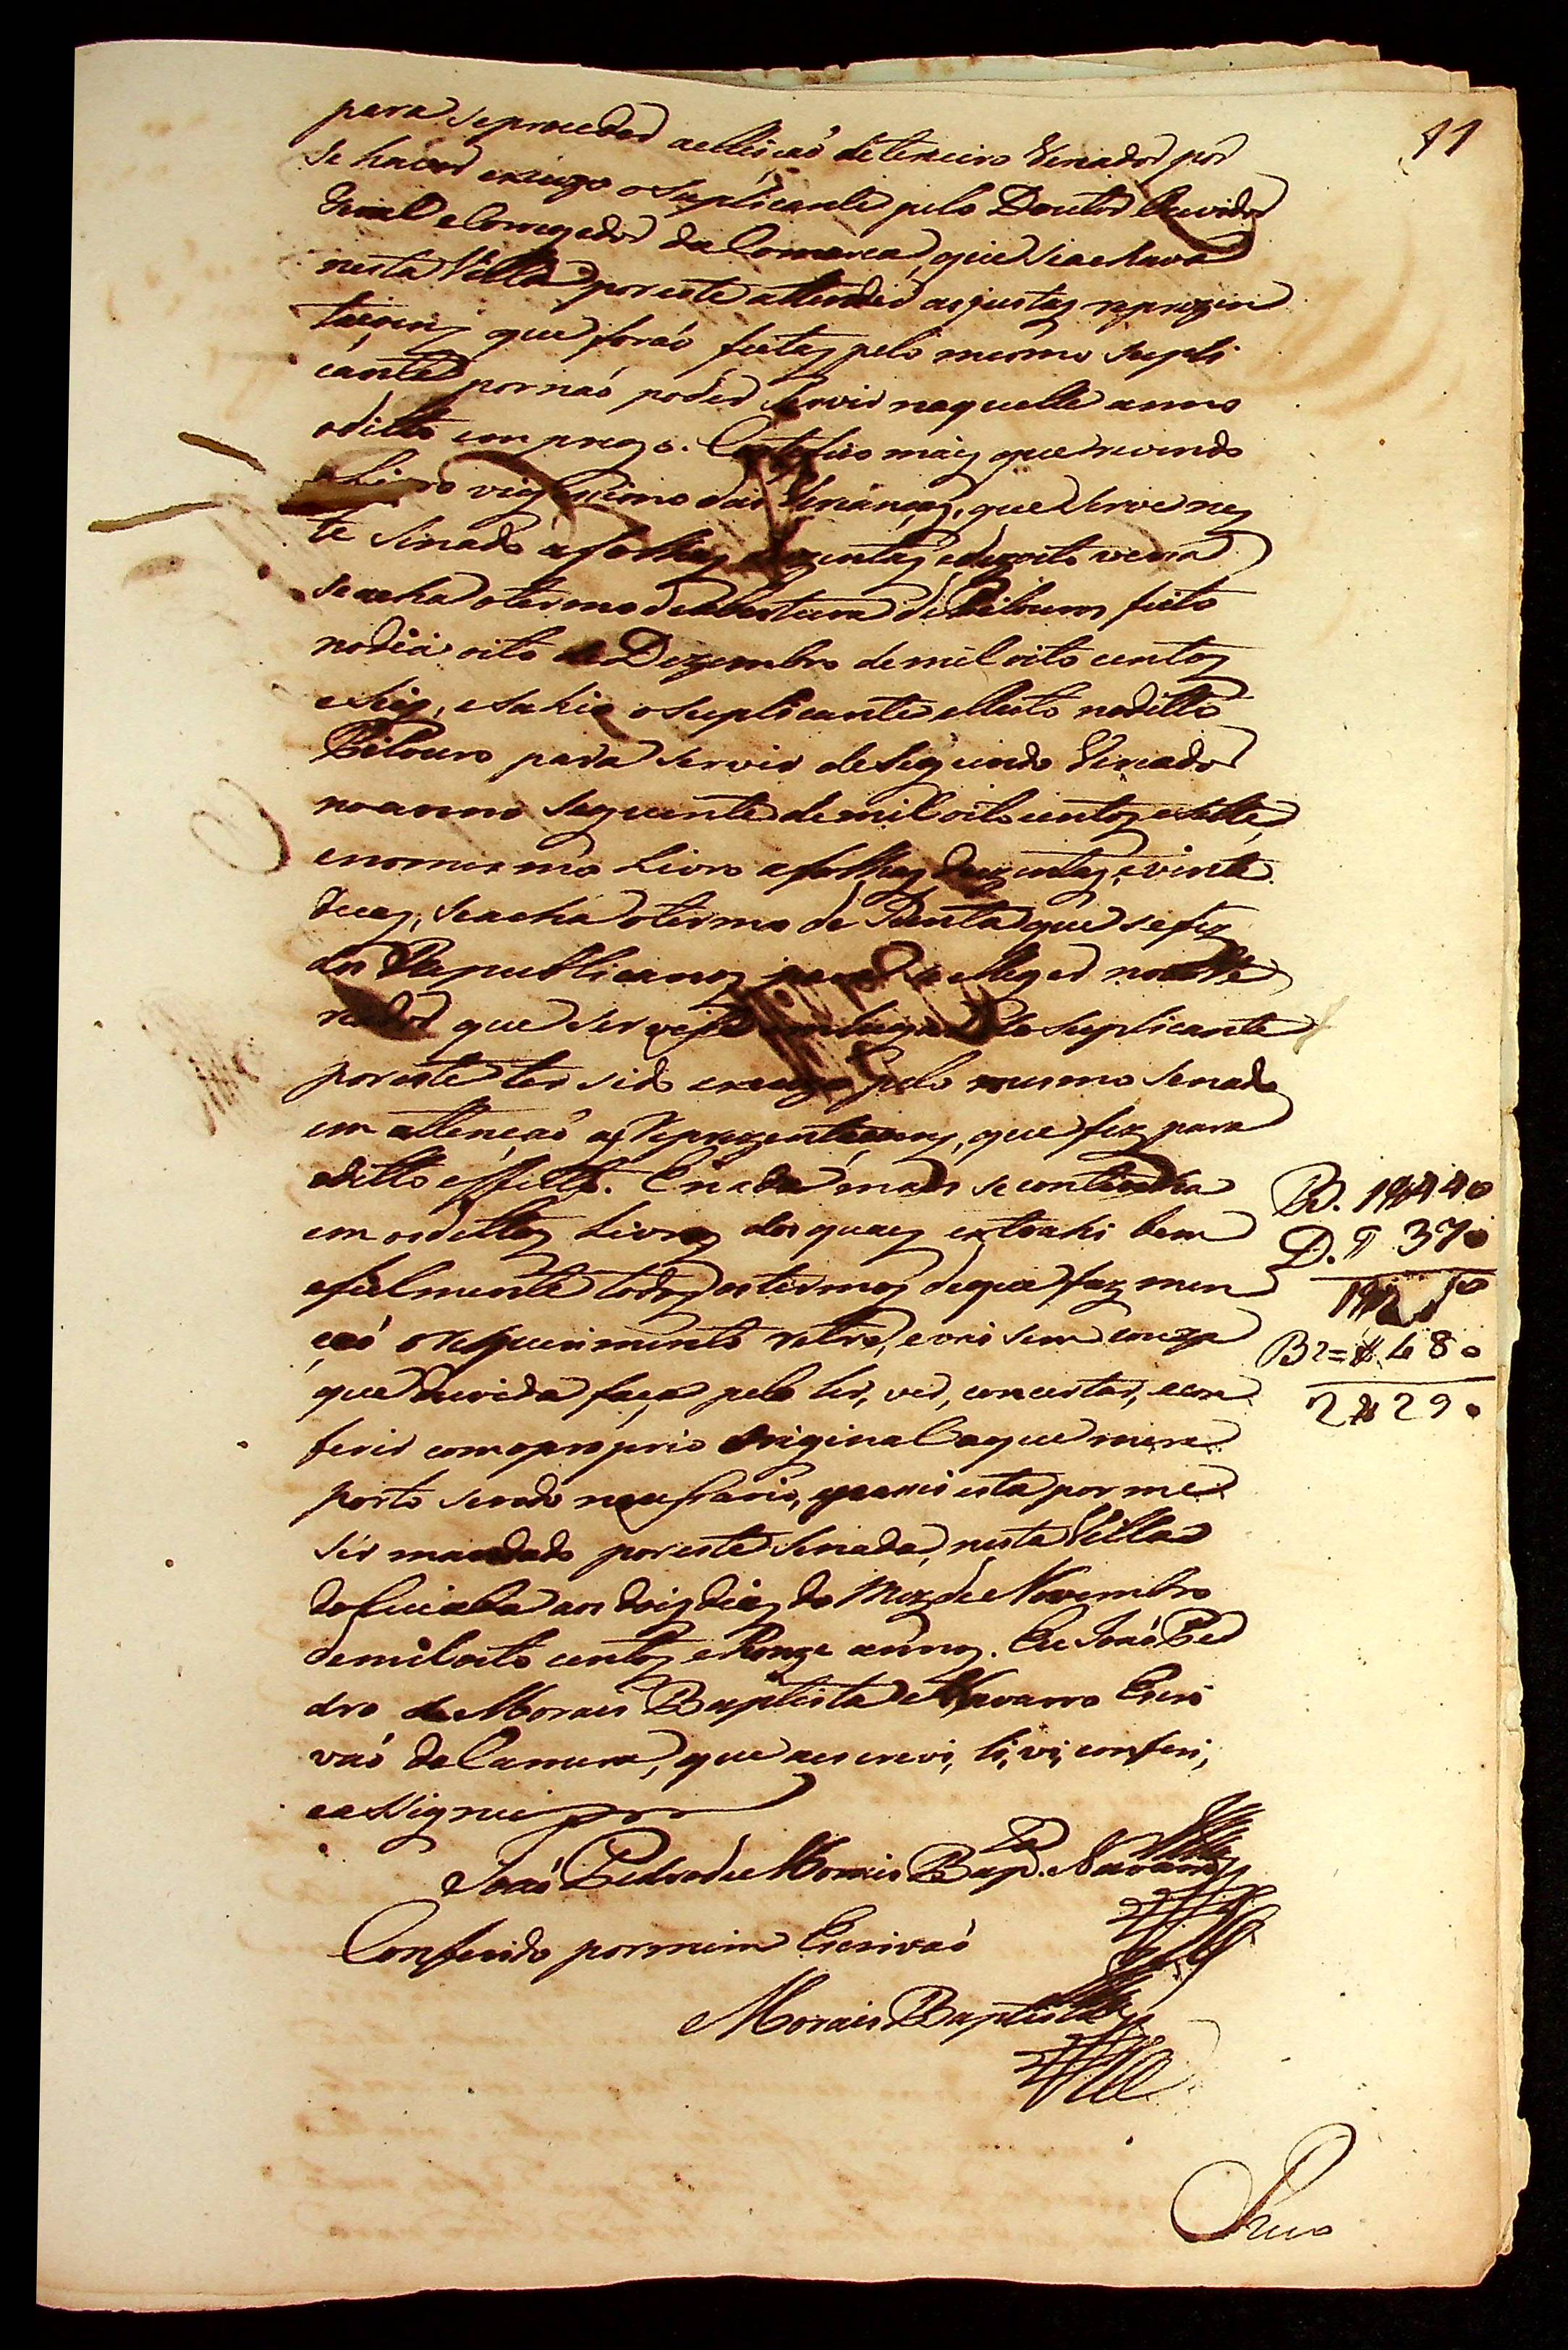 11
para se proceder a elleiçaõ de terceiro Vereador por
se haver excuzo o Suplicante pelo Doutor Ouvidor
Geral e Corregedor da Comarca, que se achava
nesta Villa por este attender as justas reprezen
taçoens que foraõ feitas pelo mesmo Supli
cante por naõ poder servir naquelle anno
o ditto emprego. Certefico mais que revendo
o Livro vigessimo das Vereanças, que serve nes
te Senado a folhas duzentas e dezoito verça
se acha o termo de abertura de Pilouros feito
no dia oito de Dezembro de mil oito centos
e seis, e sahio o Suplicante elleito no ditto
Pilouro para servir de segundo Vereador
no anno seguente de mil oito centos e sette,
e no mesmo Livro a folhas duzentas, e vinte
duas, se acha o termo de Junta que se fez
dos Republicanos para se elleger novo Ve
reador que servisse em lugar do Suplicante
por este ter sido excuzo pelo mesmo Senado
em attençaõ as Reprezentaçoens, que fez para
o ditto effeito. E nada mais se continha
em os dittos Livros dos quaes extrahi bem
e fielmente todos os termos de que faz men
çaõ o requerimento retro, e vai sem couza
que duvida faça pelo ler, ver, concertar, e con
ferir com o proprio Original a que me re
porto sendo necessario, e passei esta por me
ser mandado por este Senado, nesta Villa
do Cuiaba aos dois dias do Mez de Novembro
de mil oito centos e honze annos. Eu Joaõ Pe
dro de Morais Baptista e Navarro Escri
vaõ da Camara, que a escrevi, li, vi, conferi,
e a Signei
Joaõ Pedro de Morais Bap.ta Navarro
Conferido por mim Escrivaõ
Morais Baptista
D. 370
480
2$290